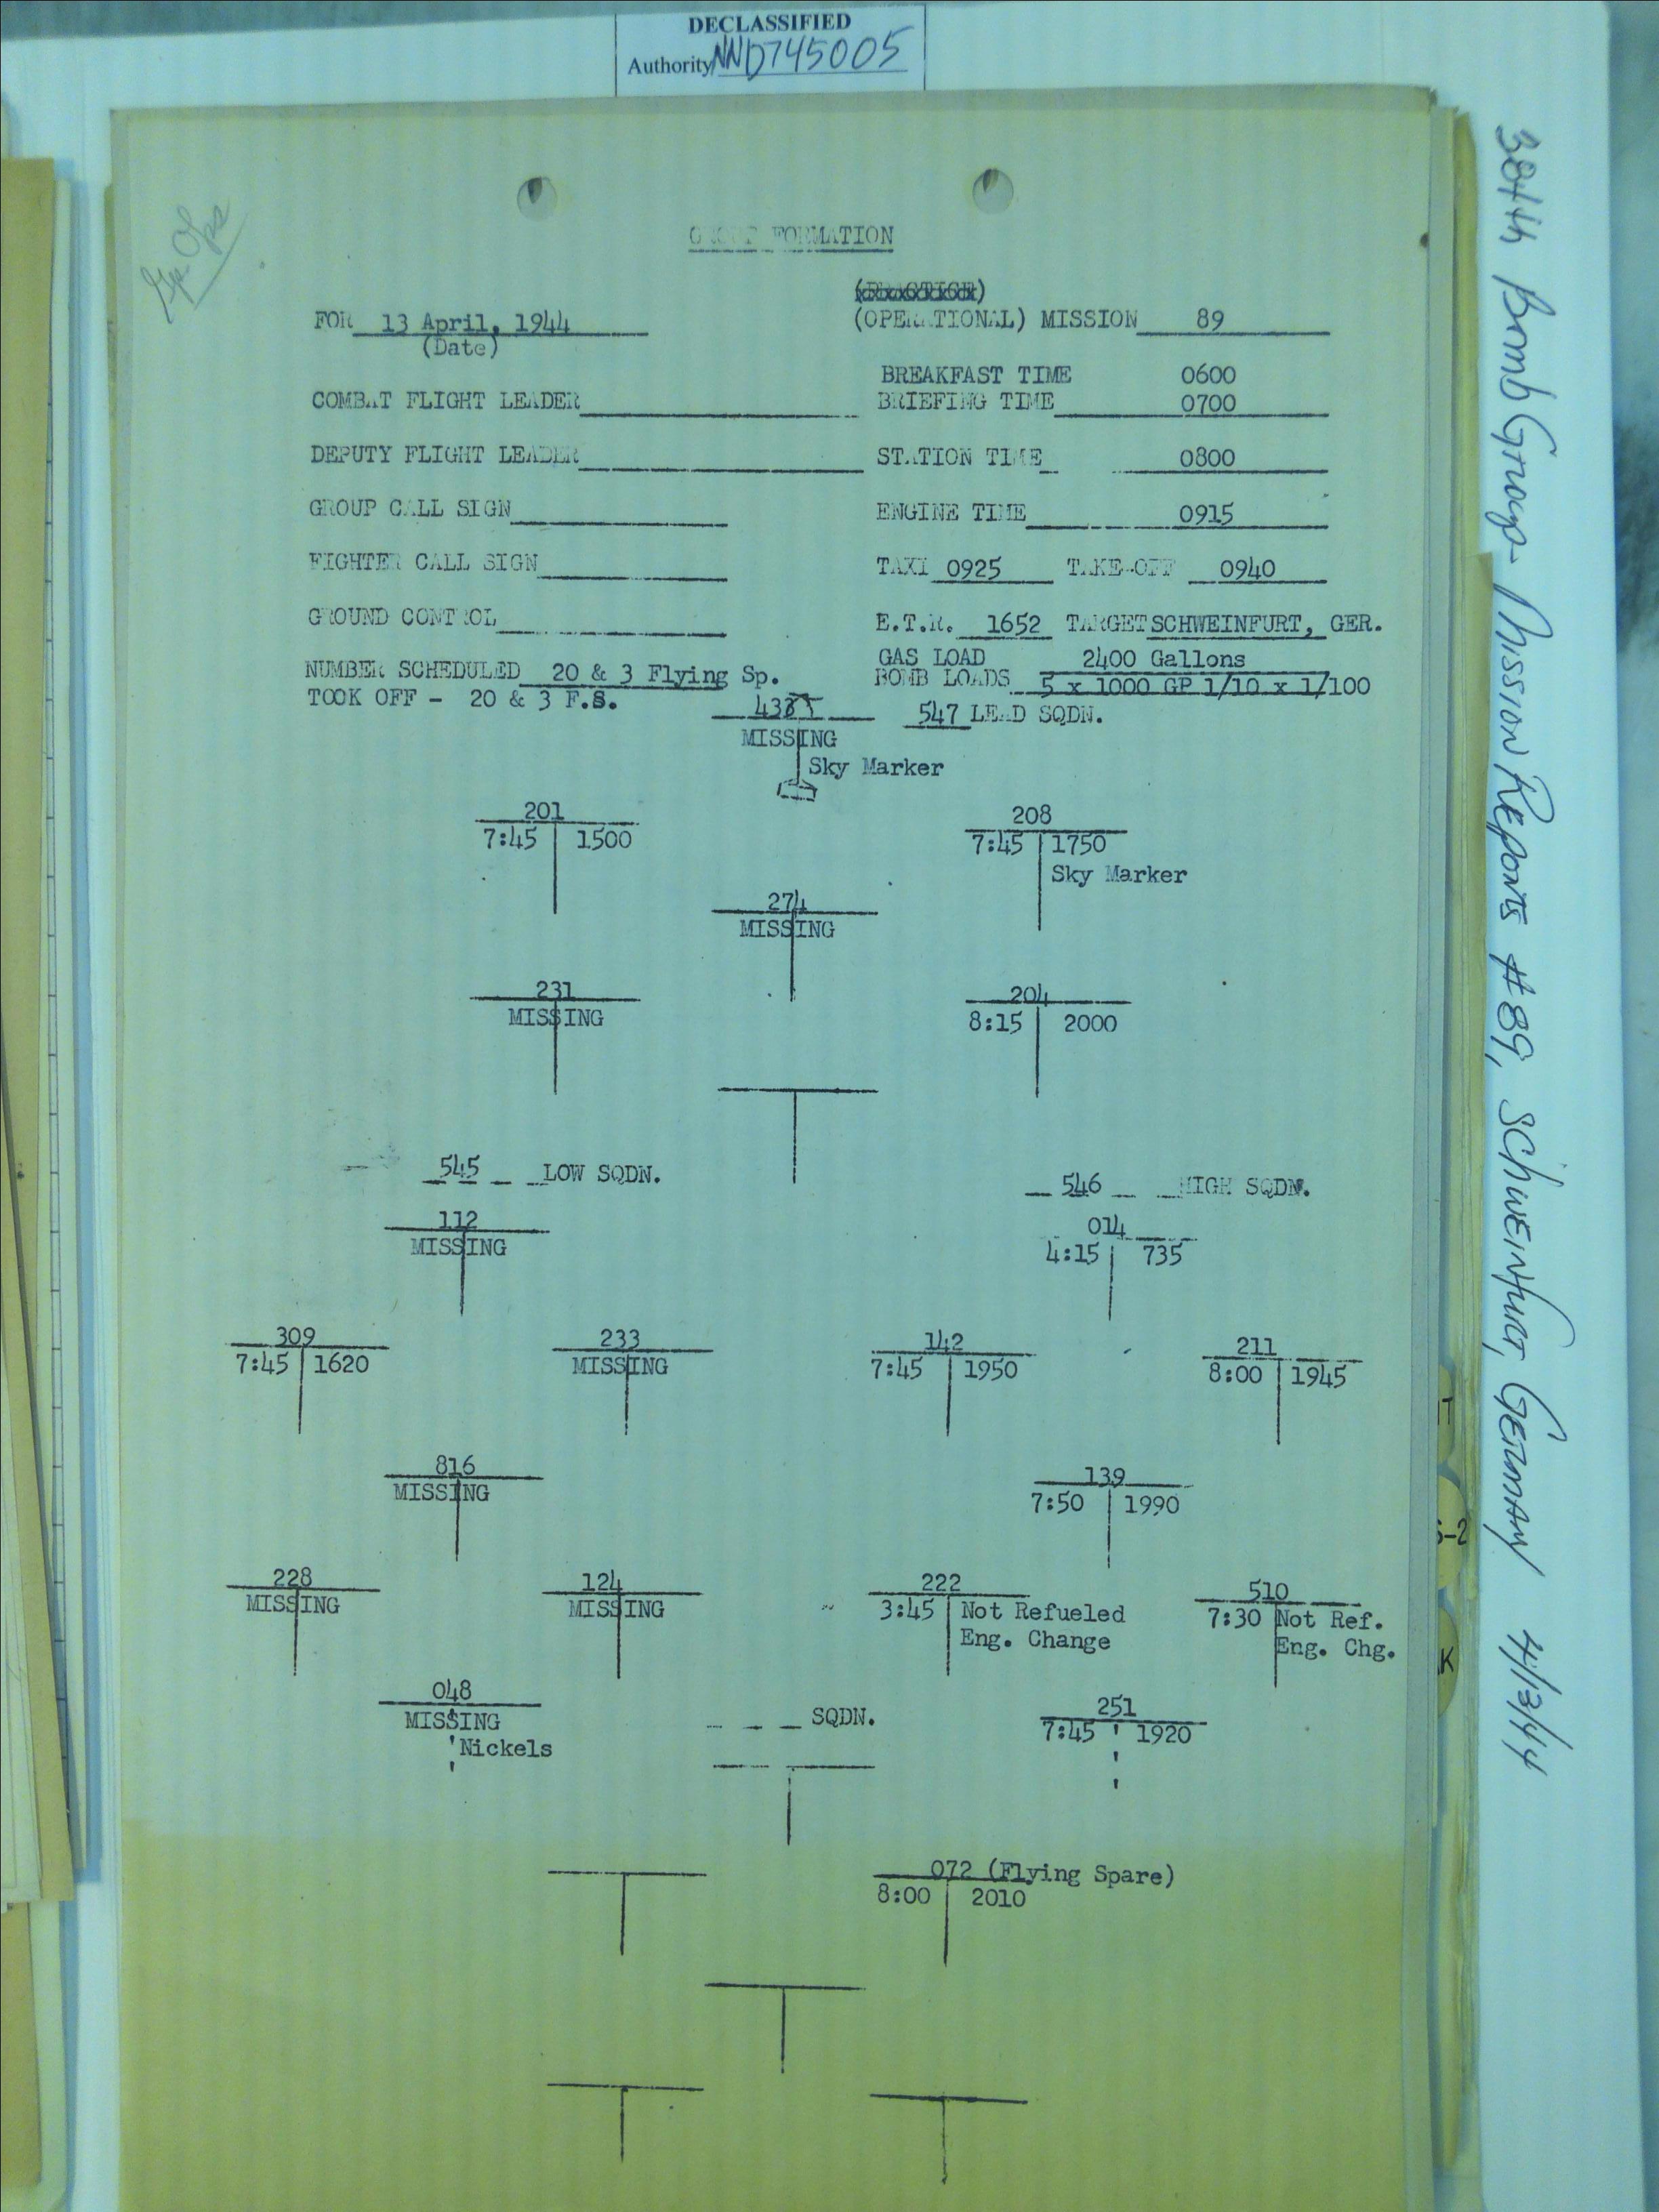 DECLASSIFIED
Authority NND745005
Gp Ops
GROUP FORMATION
(PRACTICE)
FOR 13 April, 1944 (OPERATIONAL) MISSION 89
(Date)
BREAKFAST TIME 0600
COMBAT FLIGHT LEADER BRIEFING TIME 0700
DEPUTY FLIGHT LEADER STATION TIME 0800
GROUP CALL SIGN ENGINE TIME 0915
FIGHTER CALL SIGN TAXI 0925 TAKE-OFF 0940
GROUND CONTROL E.T.R. 1652 TARGET SCHWEINFURT, GER.
GAS LOAD 2400 Gallons
NUMBER SCHEDULED 20 & 3 Flying Sp. BOMB LOADS 5 x 1000 GP 1/10 x 1/100
TOOK OFF - 20 & 3 F.S.
547 LEAD SQDN.
MISSING
Sky Marker
201 208
7:45 1500 7:45 1750
Sky Marker
274
MISSING
231 204
MISSING 8:15 2000
545 LOW SQDN. 546 HIGH SQDN.
112 014
MISSING 4:15 735
309 233 142 211
7:45 1620 MISSING 7:45 1950 8:00 1945
816 139
MISSING 7:50 1990
228 124 222 510
MISSING MISSING 3:45 Not Refueled 7:30 Not Ref.
Eng. Change Eng. Chg.
048 251
MISSING SQDN. 7:45 1920
Nickels
072 (Flying Spare)
8:00 2010
384th Bomb Group - Mission Reports #89, Schweinfurt, Germany 4/13/44
IT
S-2
K